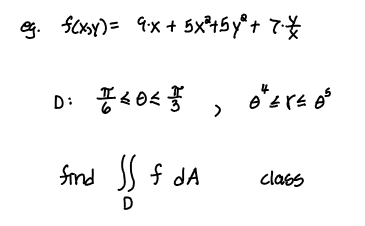 eg. f(x,y) = 9·x + 5x²+5y² + 7·y/x
D: π/6 ≤ θ ≤ π/3 , θ⁴ ≤ r ≤ θ⁵
find ∬_D f dA class